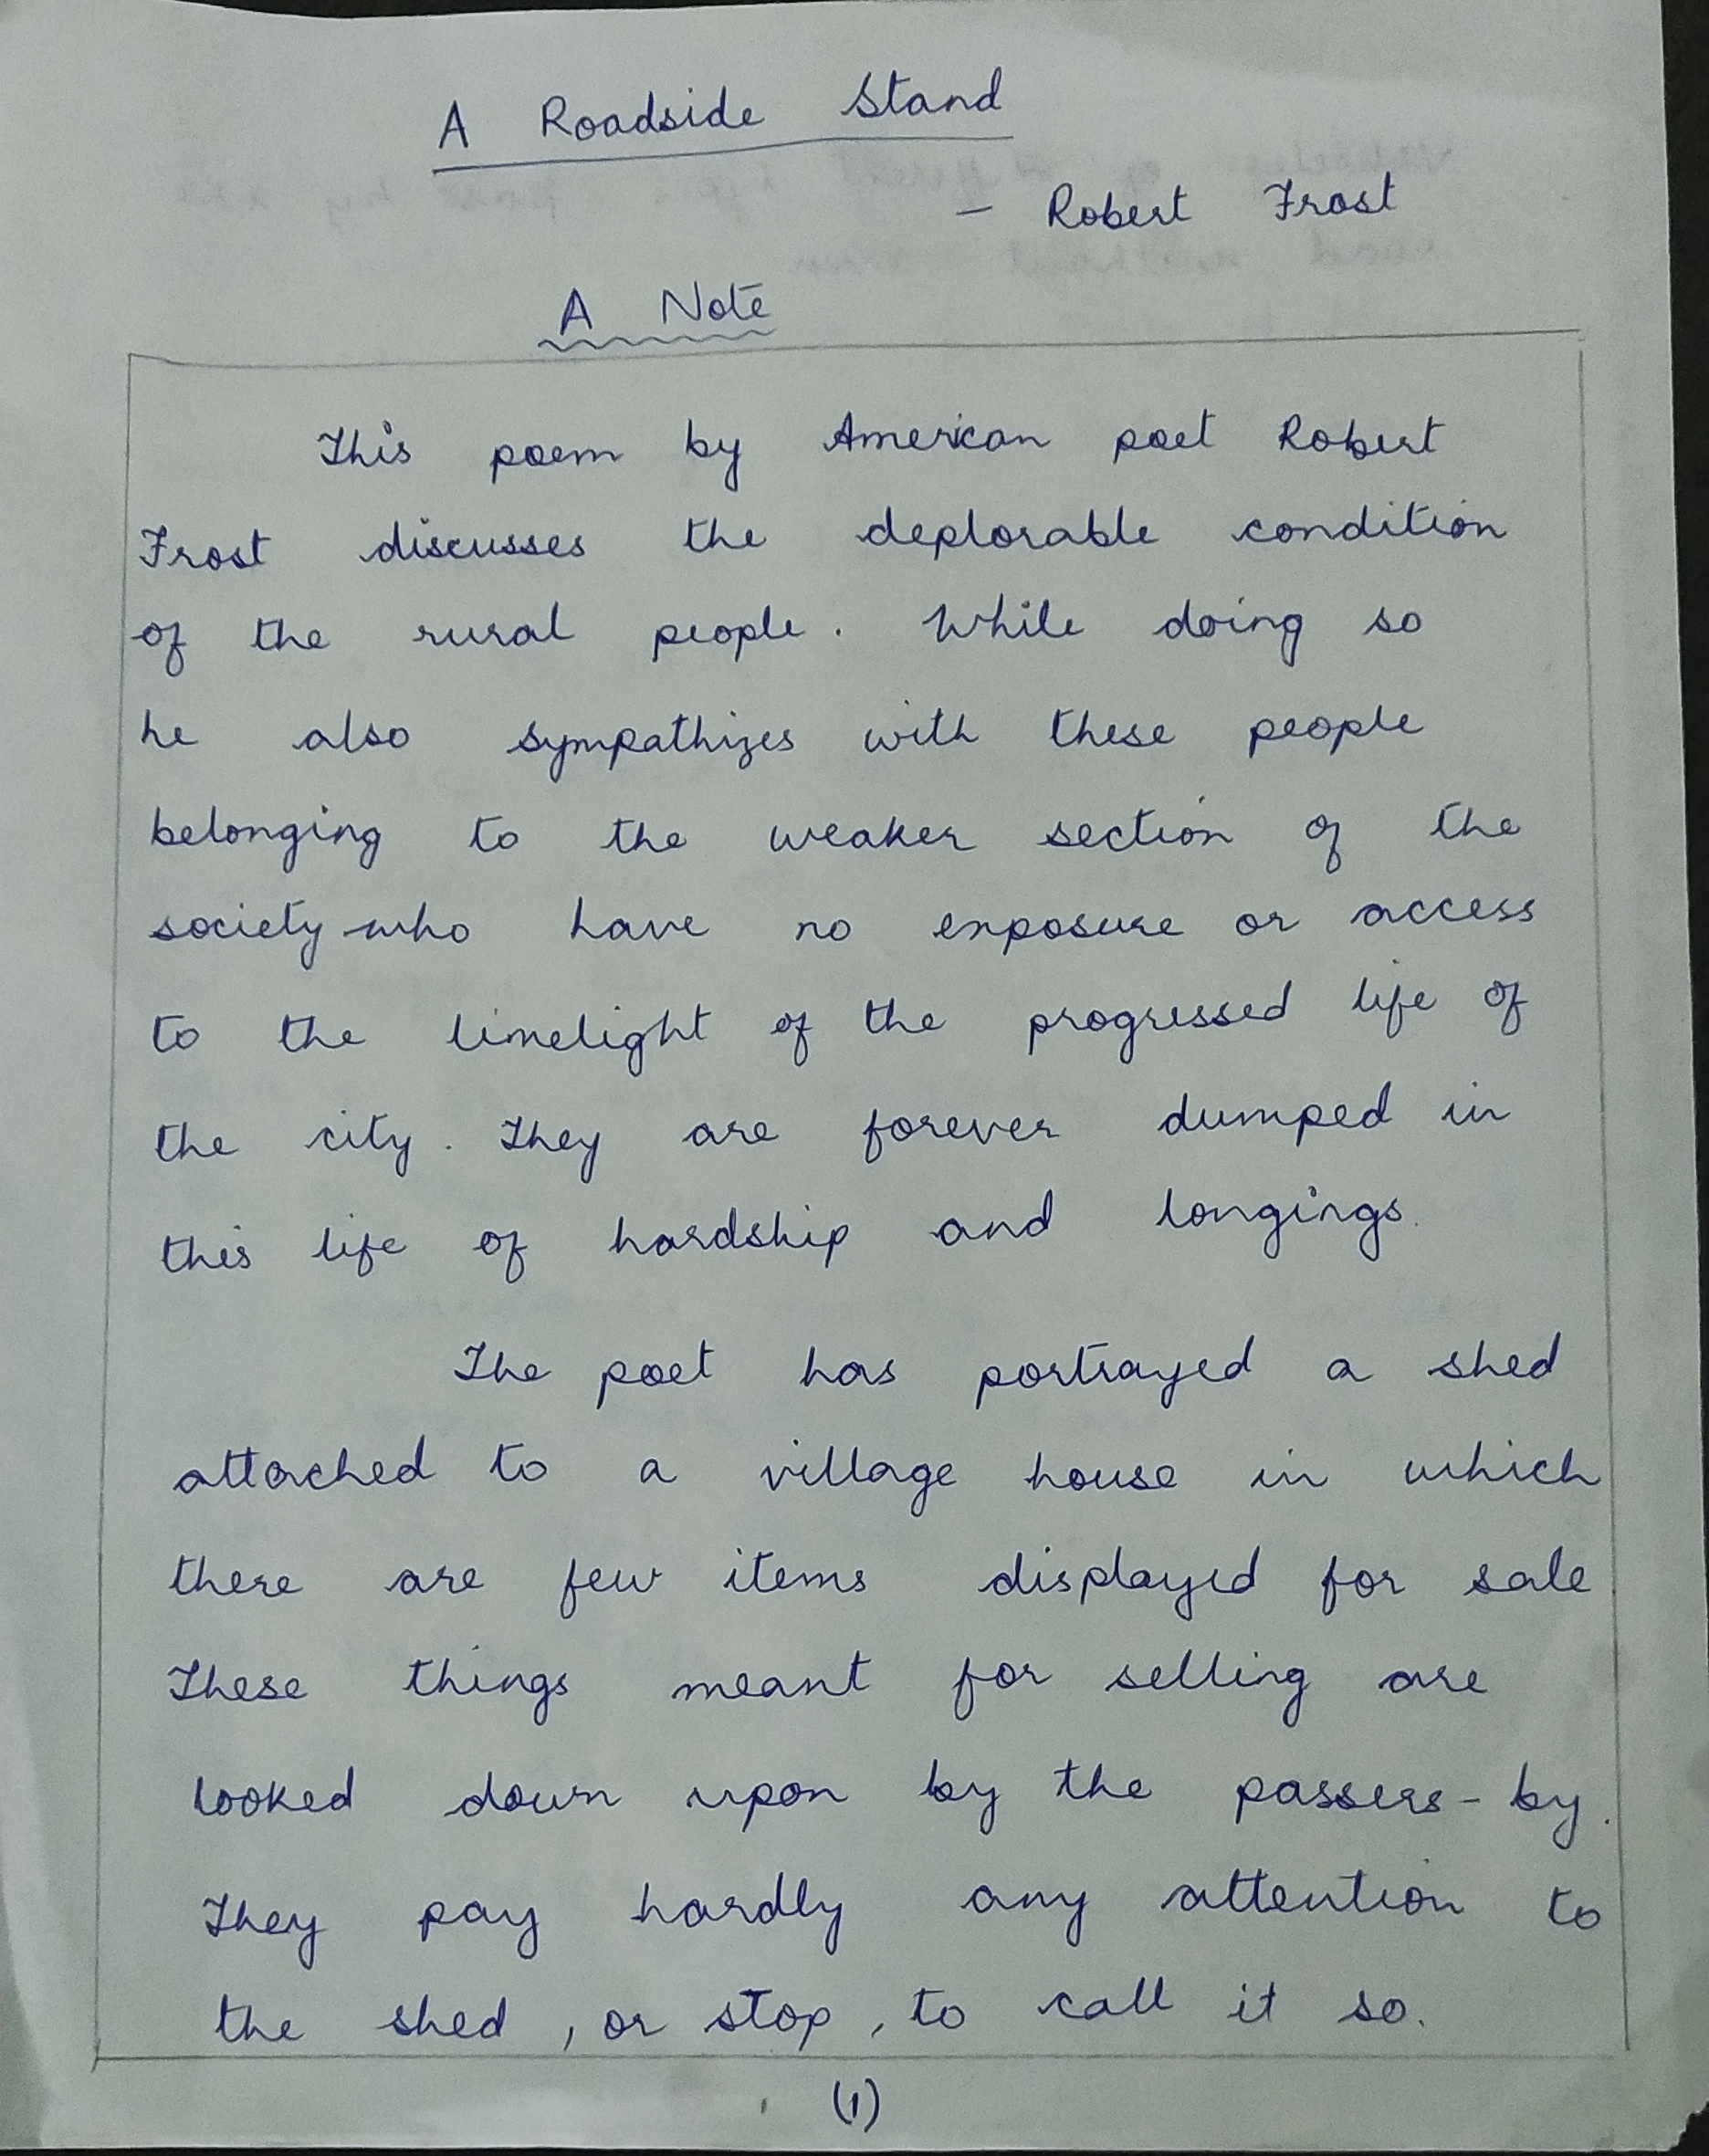 A Roadside Stand
- Robert Frost
A Note
This poem by American poet Robert
Frost discusses the deplorable condition
of the rural people. While doing so
he also sympathizes with these people
belonging to the weaker section of the
society who have no exposure or access
to the limelight of the progressed life of
the city. They are forever dumped in
this life of hardship and longings.
The poet has portrayed a shed
attached to a village house in which
there are few items displayed for sale.
These things meant for selling are
looked down upon by the passers-by.
They pay hardly any attention to
the shed, or stop, to call it so.
(1)